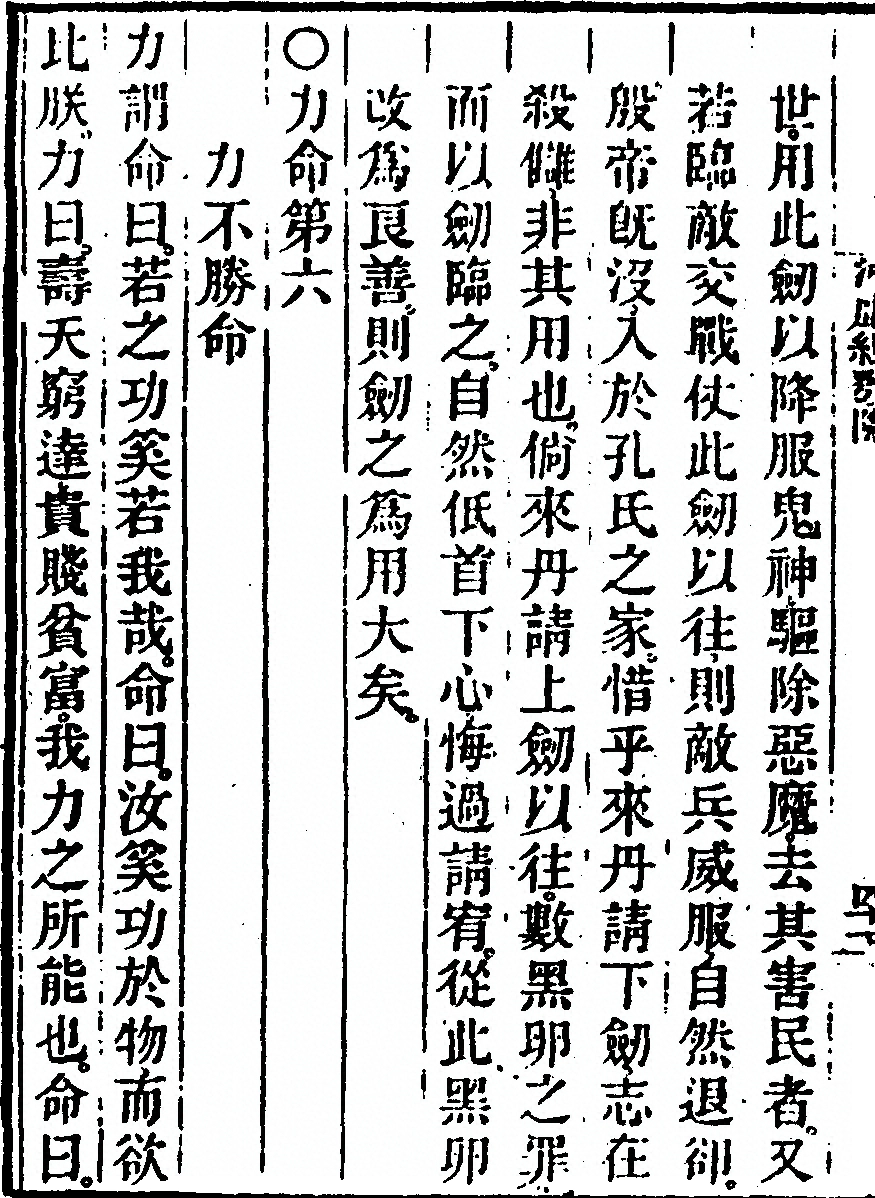 世。用此劒以降服鬼神、驅除惡魔。去其害民者。又
若臨敵交戰、仗此劒以往、則敵兵威服、自然退卻。
殷帝旣沒、入於孔氏之家。惜乎來丹請下劒、志在
殺讎、非其用也。倘來丹請上劒以往。數黑卵之罪、
而以劒臨之、自然低首下心、悔過請宥。從此黑卵
改爲良善、則劒之爲用大矣。
〇力命第六
力不勝命
力謂命曰。若之功奚若我哉。命曰。汝奚功於物而欲
比朕。力曰。壽夭窮達、貴賤貧富。我力之所能也。命曰。